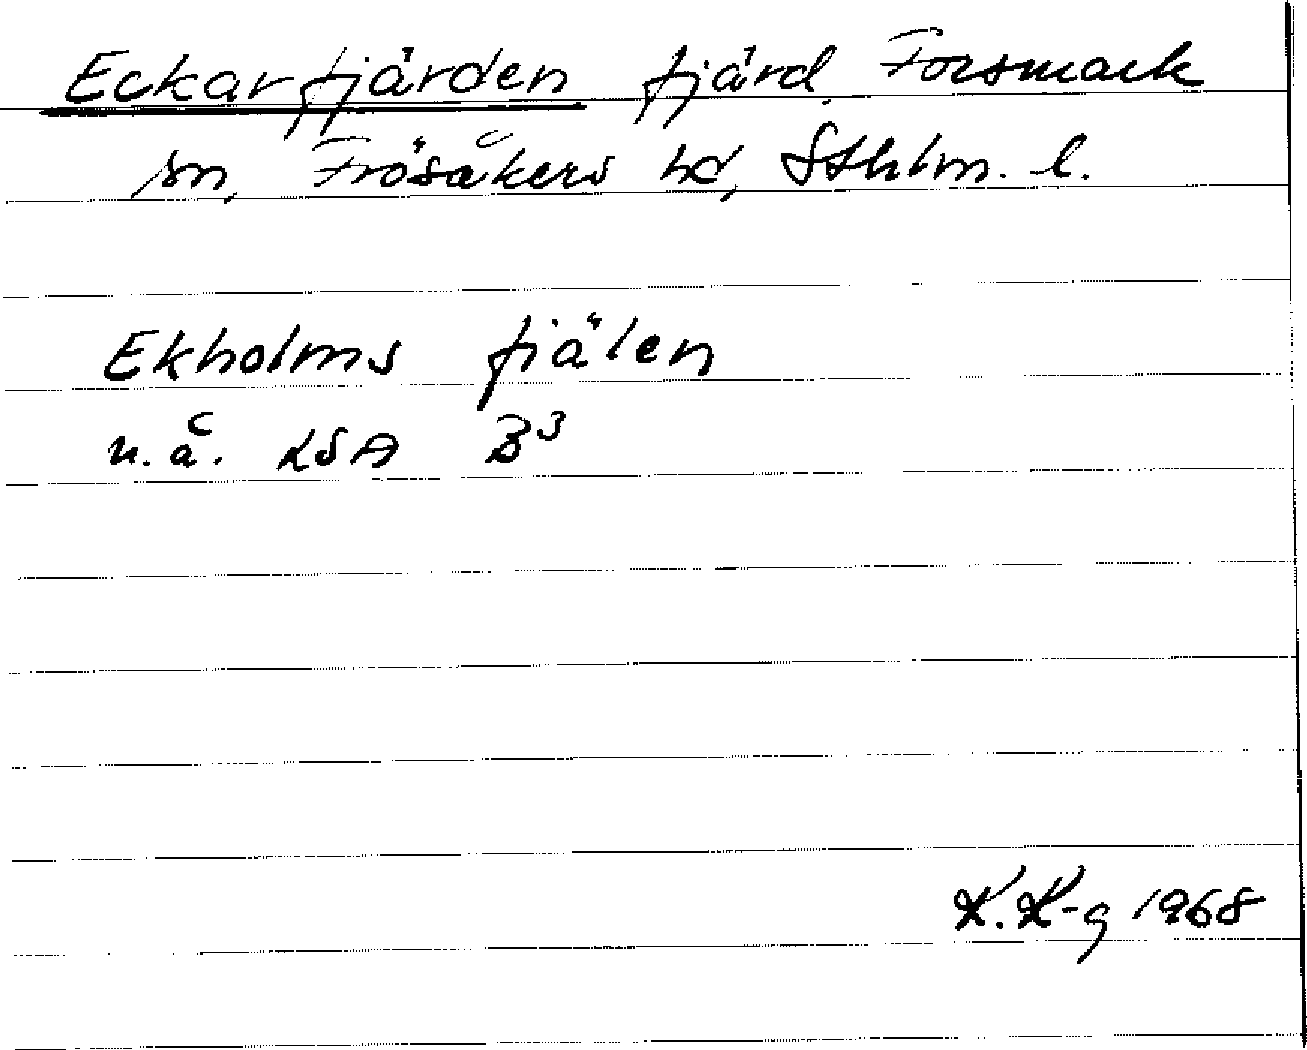 Eckarfjärden fjärd, Forsmark
sn, Frösåkers hd, Sthlm. l.
Ekholms fiälen
u.å. LSA B3
K.K-g 1968